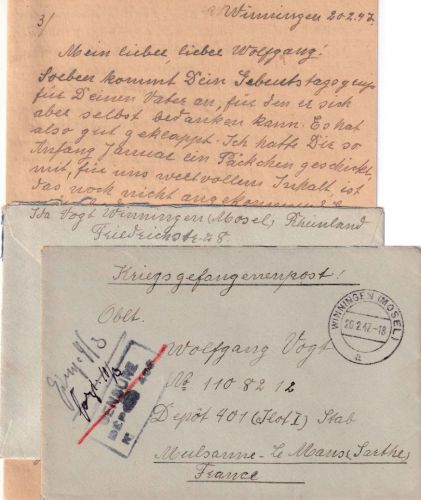 Winningen 20.2.47.
3/
Mein lieber, lieber Wolfgang!
Soeben kommt Dein Geburtstagsgruß
für Deinen Vater an, für den er sich
aber selbst bedanken kann. Es hat
also gut geklappt. Ich hatte Dir so
Anfang Januar ein Päckchen geschickt,
mit, für uns wertvollem Inhalt ist
das noch nicht angekommen?
Vogt Winningen (Mosel) Rheinland
Friedrichstr. 28.
Kriegsgefangenenpost!
WINNINGEN (MOSEL)
20.2.47.-18
a
Oblt.
Wolfgang Vogt
No 1108212
Depôt 401 (Ilot I) Stab
Mulsanne-Le Mans (Sarthe)
France
CENSURE
DÉPÔT
No